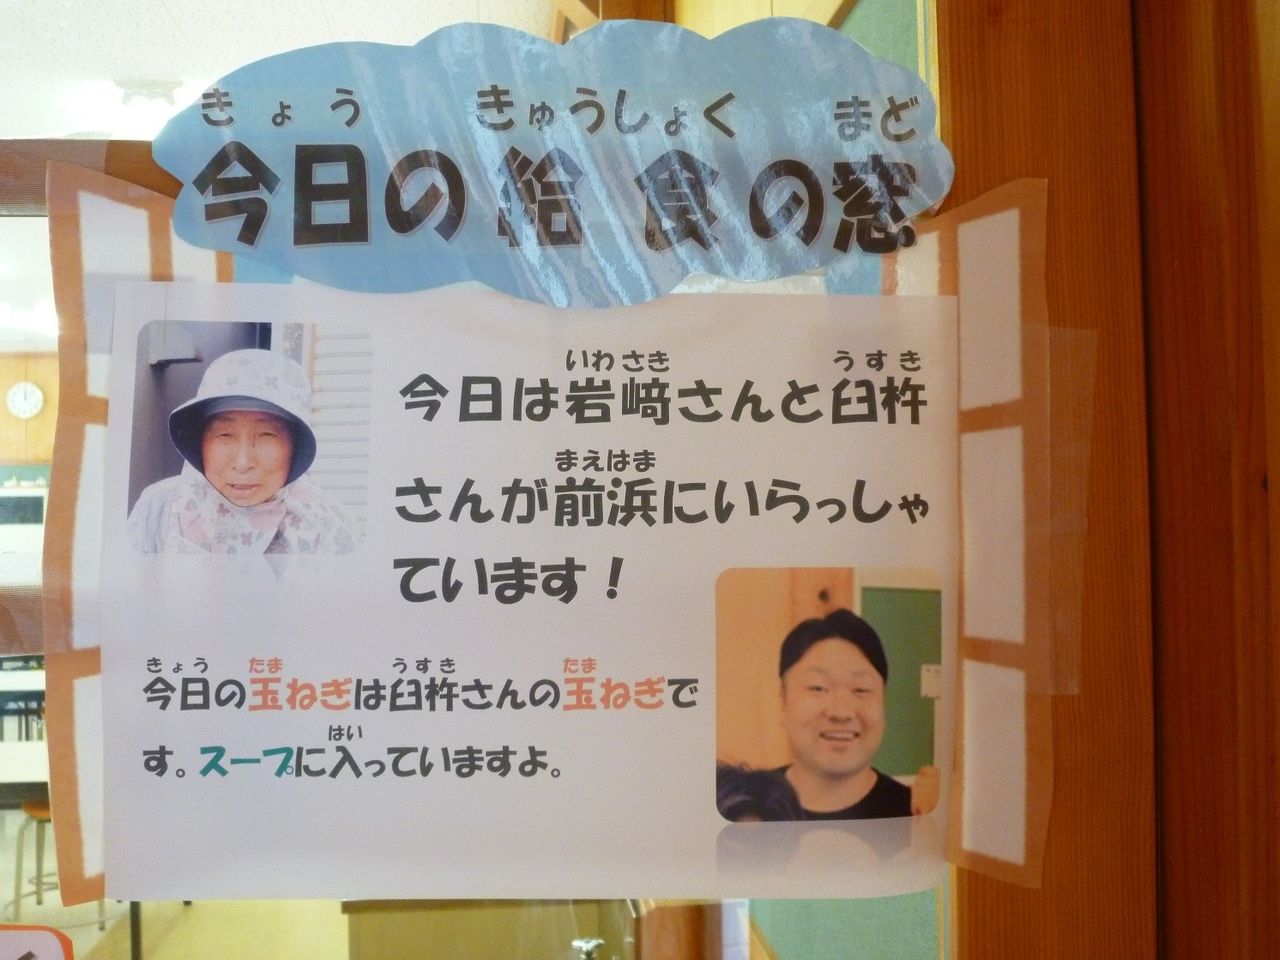 きょう きゅうしょく まど
今日の給食の窓
いわさき うすき
今日は岩﨑さんと臼杵
まえはま
さんが前浜にいらっしゃ
ています！
きょう たま うすき たま
今日の玉ねぎは臼杵さんの玉ねぎで
はい
す。スープに入っていますよ。